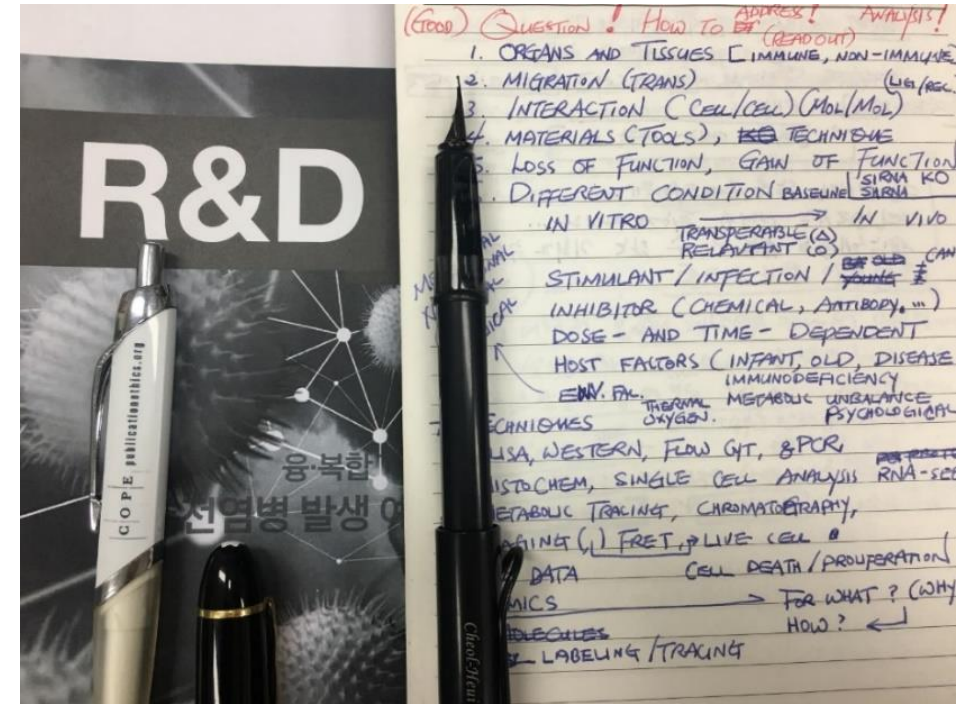 R&D
융·복합
전염병 발생
COPE publicationethics.org
Cheol-Heui
(GOOD) QUESTION! HOW TO ADDRESS! ANALYSIS!
(READOUT)
1. ORGANS AND TISSUES [IMMUNE, NON-IMMUNE
2. MIGRATION (TRANS) (LIG/REC.
3. INTERACTION (CELL/CELL) (MOL/MOL)
4. MATERIALS (TOOLS), TECHNIQUE
5. LOSS OF FUNCTION, GAIN OF FUNCTION
SIRNA KO
. DIFFERENT CONDITION BASELINE SHRNA
IN VITRO → IN VIVO
TRANSPERABLE (△)
RELAVTANT (O)
STIMULANT / INFECTION / OLD CAN
YOUNG
INHIBITOR (CHEMICAL, ANTIBODY, ...)
DOSE - AND TIME - DEPENDENT
HOST FACTORS (INFANT, OLD, DISEASE
IMMUNODEFICIENCY
ENV. FAC. THERMAL METABOLIC UNBALANCE
OXYGEN. PSYCHOLOGICAL
ECHNIQUES
LISA, WESTERN, FLOW CYT, &PCR,
ISTOCHEM, SINGLE CELL ANALYSIS RNA-SEQ
ETABOLIC TRACING, CHROMATOGRAPHY,
AGING (,) FRET, → LIVE CELL
DATA CELL DEATH / PROLIFERATION
MICS → FOR WHAT? (WHY
MOLECULES HOW?
LABELING / TRACING